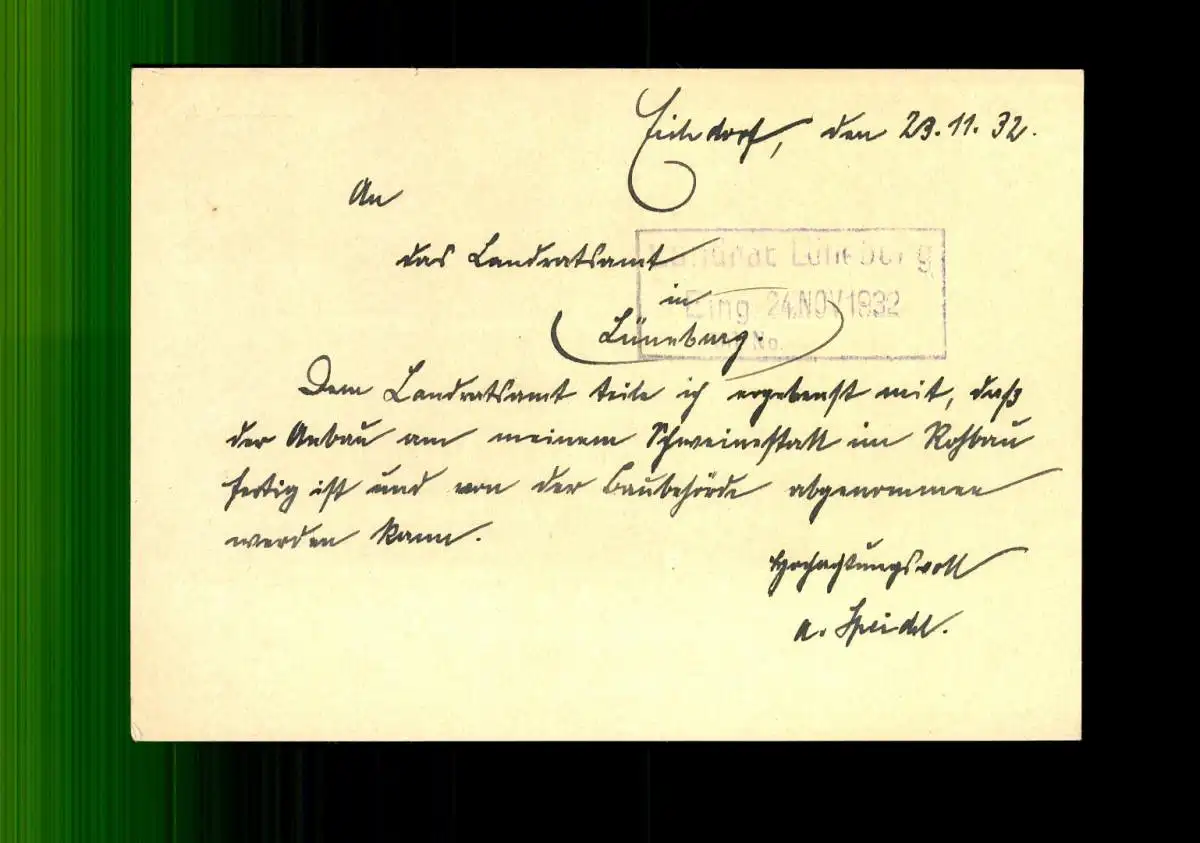 den 23.11.32.
An
das Landratsamt
in
Lüneburg.
Landrat Lüneburg
Eing. 24. NOV 1932
No.
Dem Landratsamt teile ich ergebenst mit, daß
der Anbau am meinem Schweinestall im Rohbau
fertig ist und von der Baubehörde abgenommen
werden kann.
Hochachtungsvoll
A. Speidel.